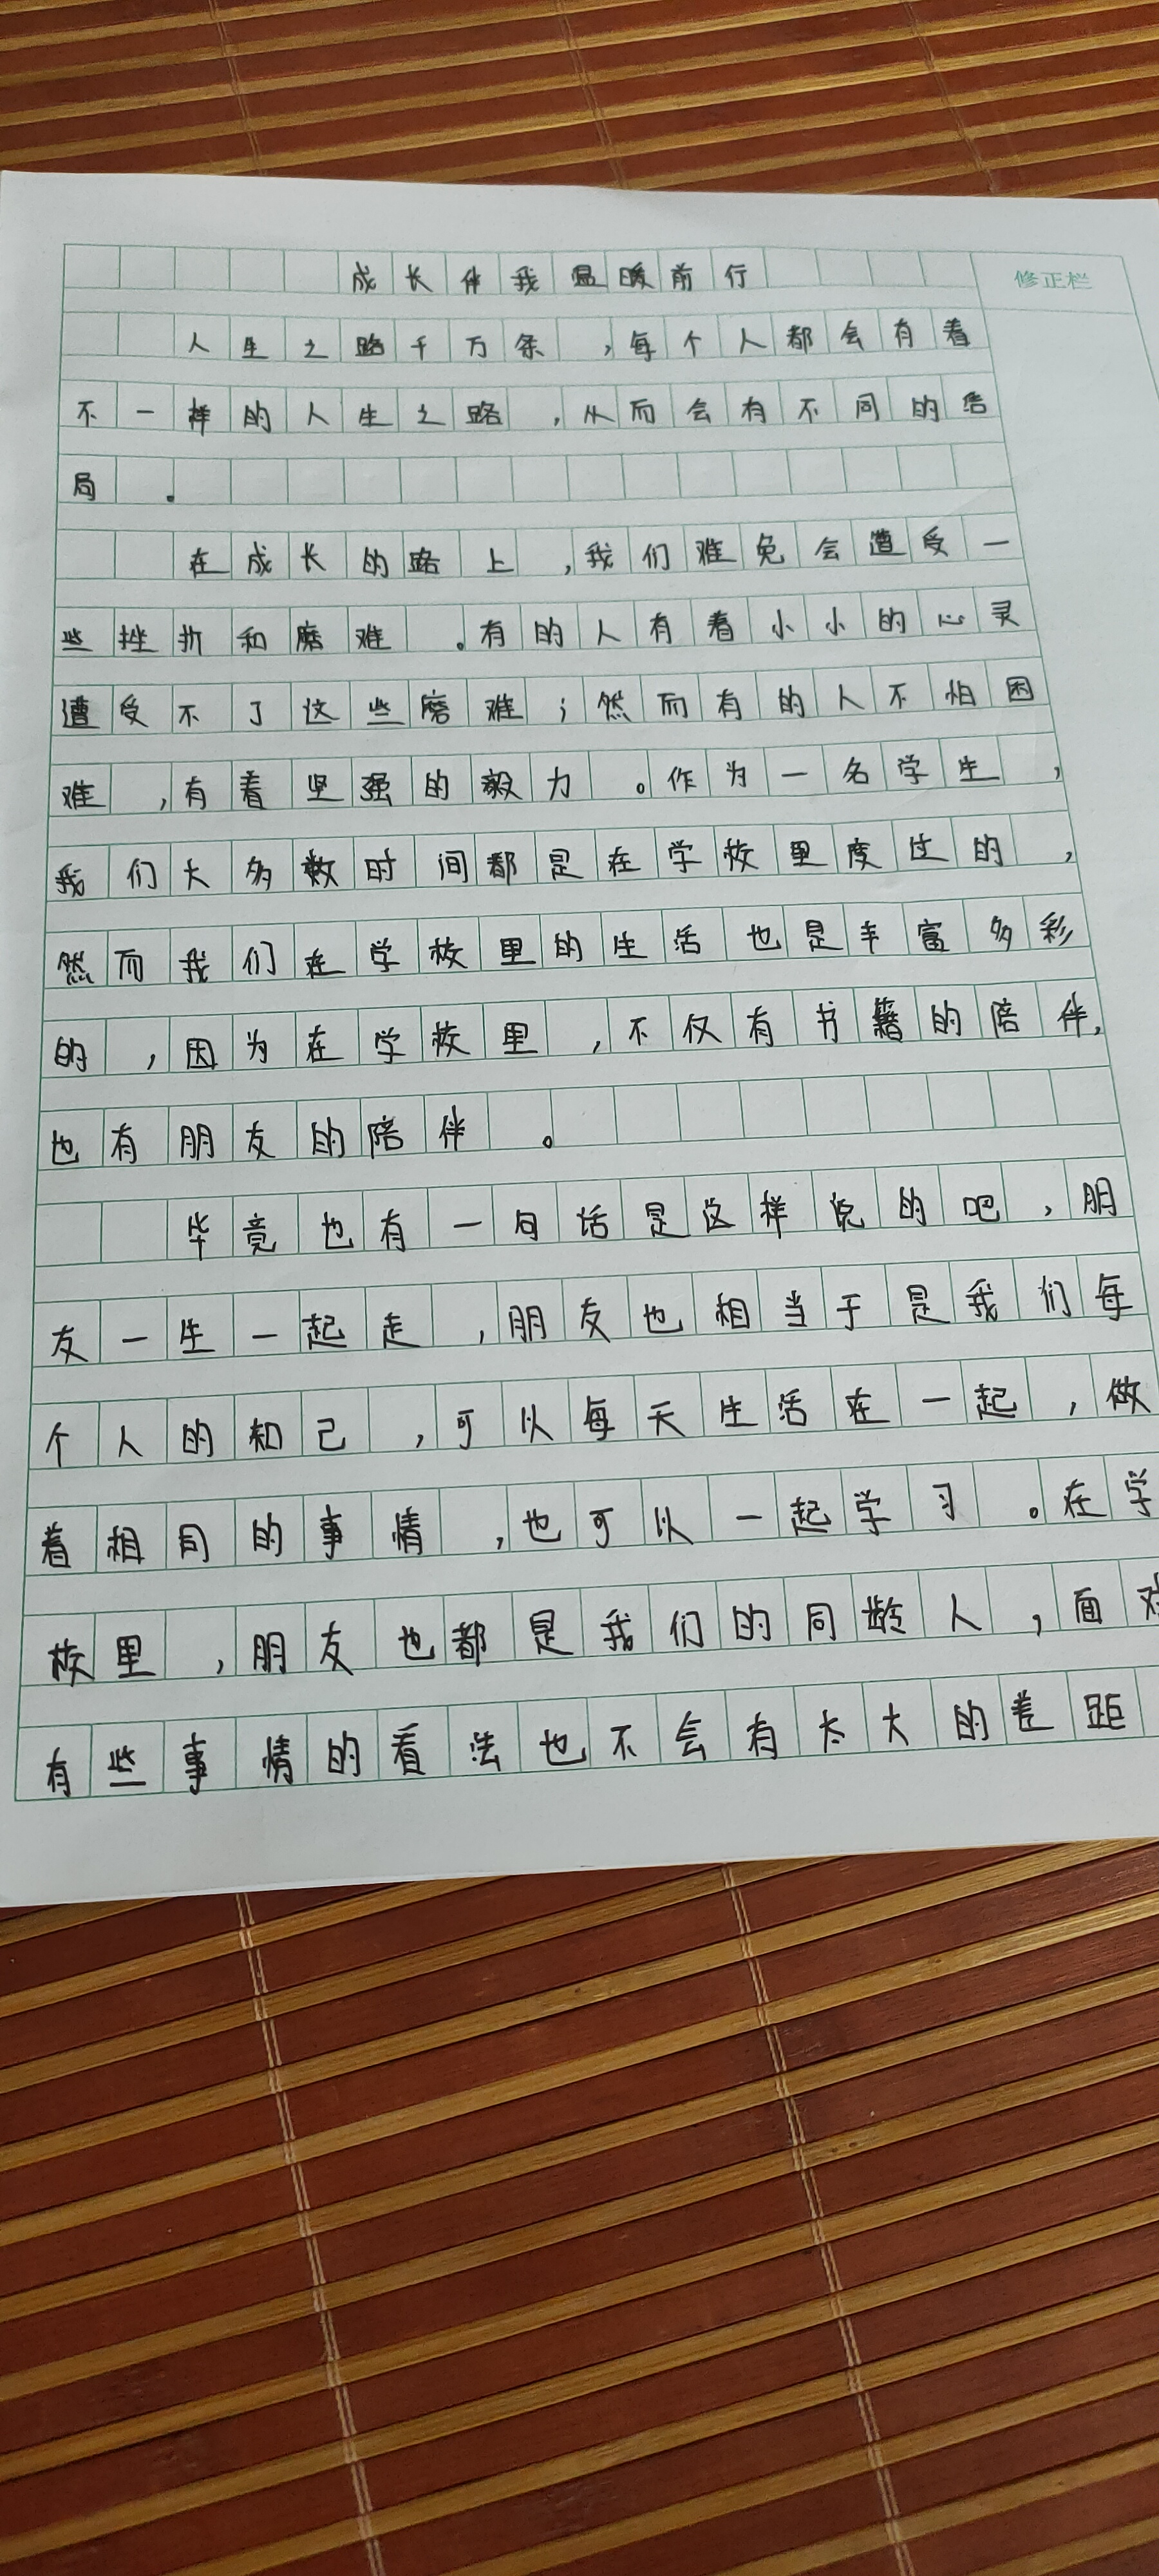 成长伴我温暖前行
修正栏
人生之路千万条,每个人都会有着
不一样的人生之路,从而会有不同的结
局.
在成长的路上,我们难免会遭受一
些挫折和磨难。有的人有着小小的心灵
遭受不了这些磨难;然而有的人不怕困
难,有着坚强的毅力。作为一名学生,
我们大多数时间都是在学校里度过的,
然而我们在学校里的生活也是丰富多彩
的,因为在学校里,不仅有书籍的陪伴,
也有朋友的陪伴。
毕竟也有一句话是这样说的吧,朋
友一生一起走,朋友也相当于是我们每
个人的知己,可以每天生活在一起,做
着相同的事情,也可以一起学习。在学
校里,朋友也都是我们的同龄人,面对
有些事情的看法也不会有太大的差距